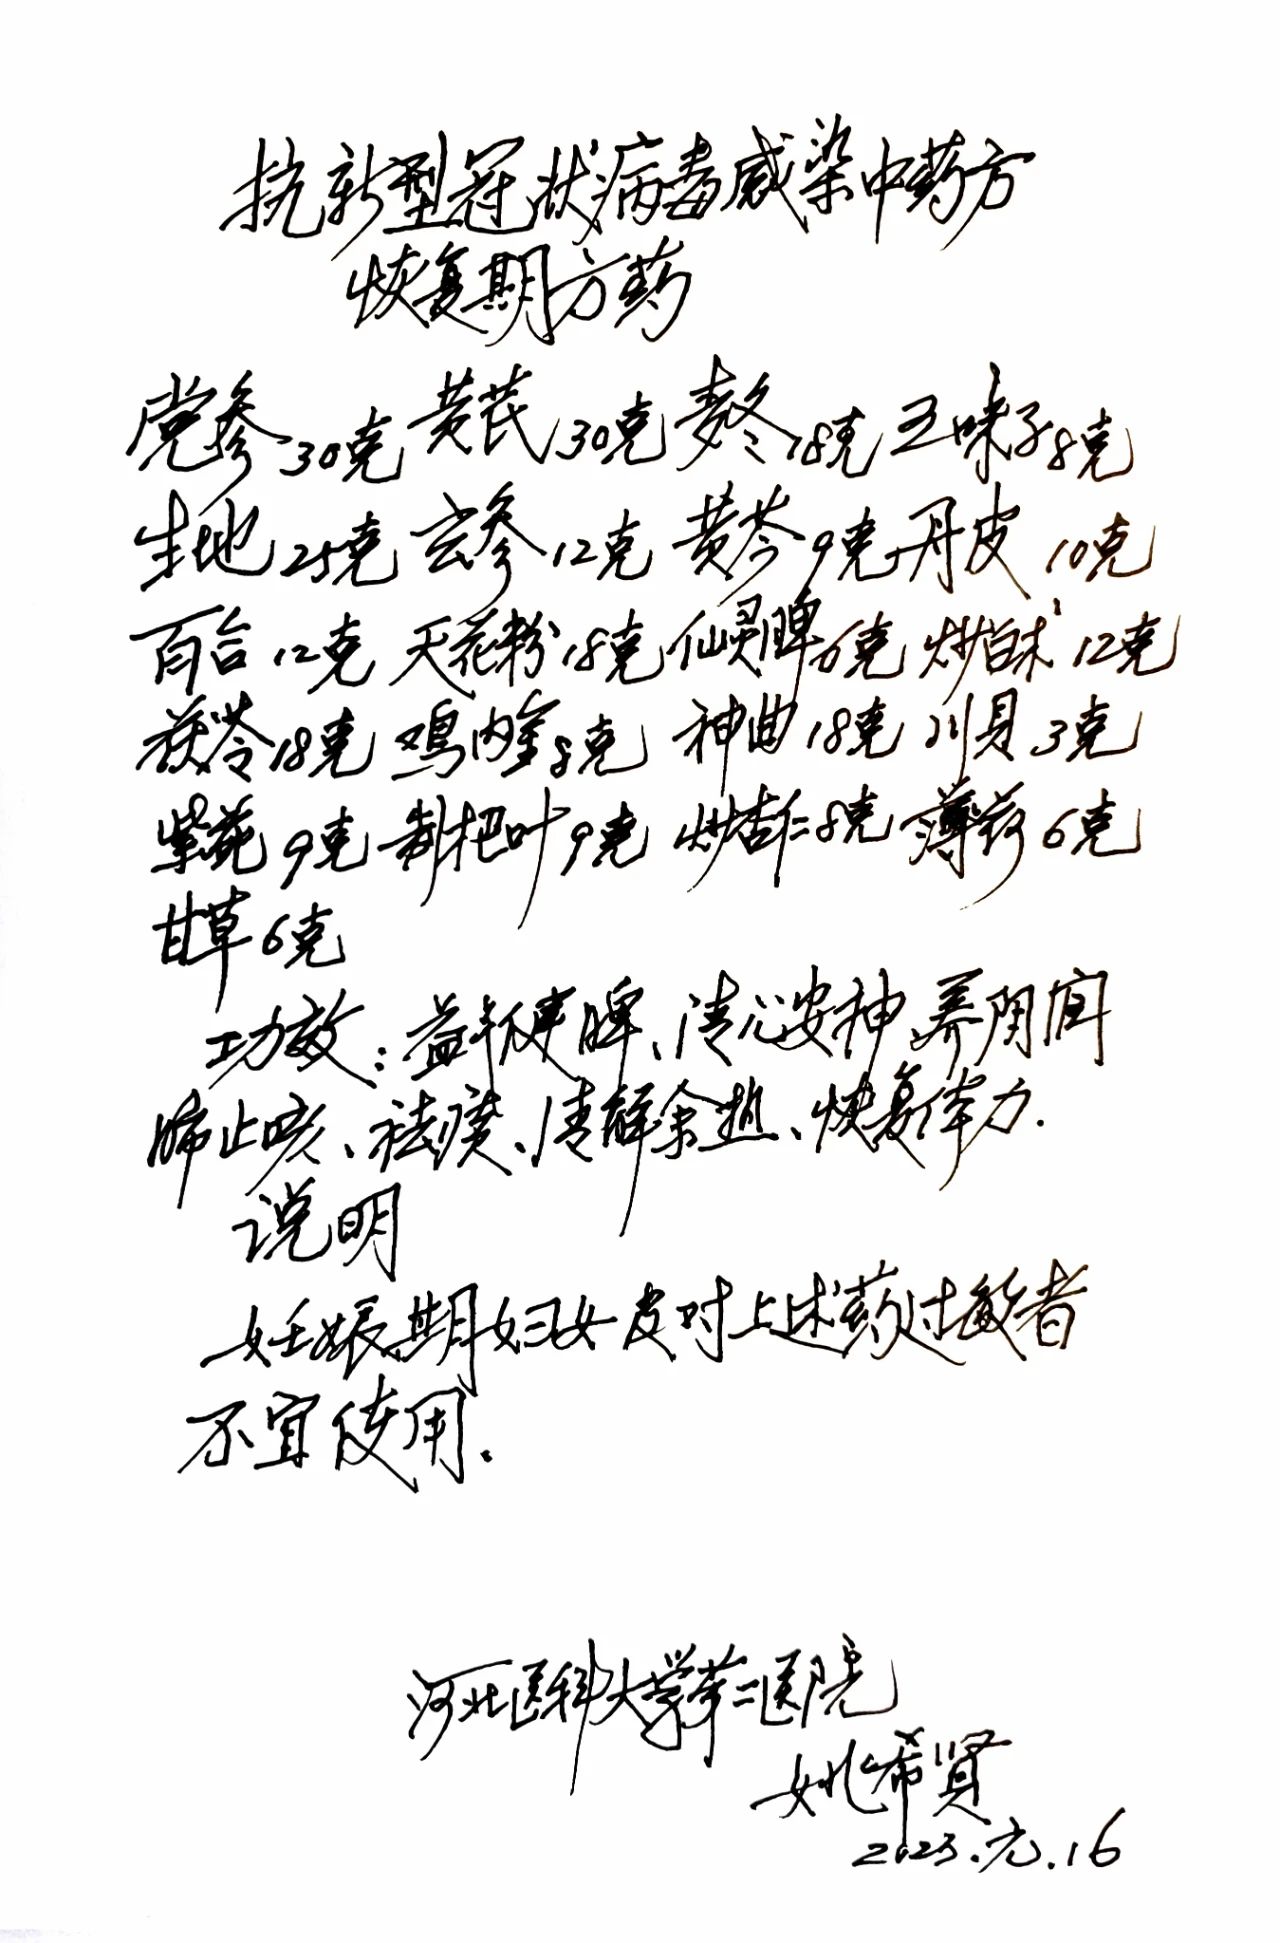 抗新型冠状病毒感染中药方
恢复期方药
党参30克 黄芪30克 麦冬18克 五味子8克
生地25克 玄参12克 黄芩9克 丹皮10克
百合12克 天花粉18克 仙灵脾6克 炒白术12克
茯苓18克 鸡内金8克 神曲18克 川贝3克
紫菀9克 制杷叶9克 炒杏仁8克 薄荷6克
甘草6克
功效：益气健脾、清心安神、养阴宣
肺止咳、祛痰、清解余热、恢复体力.
说明
妊娠期妇女及对上述药过敏者
不宜使用.
河北医科大学第二医院
姚希贤
2023.元.16